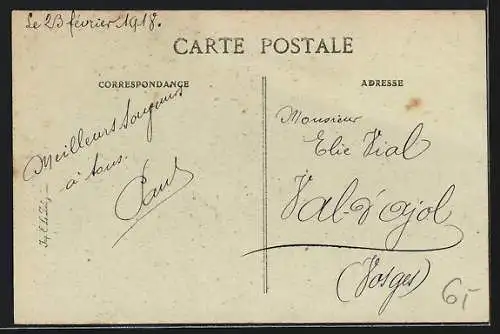 Le 23 février 1918.
CARTE POSTALE
CORRESPONDANCE
Meilleurs Songeurs
à tous.
Paul
ADRESSE
Monsieur
Elie Vial
Val-d'Ajol
(Vosges)
6,-